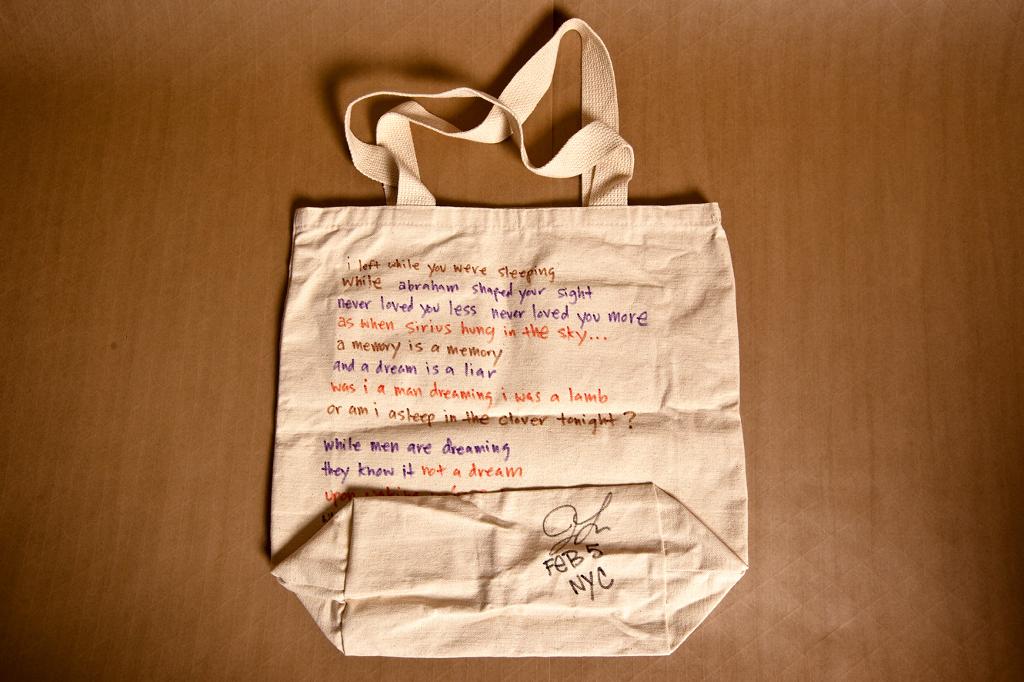 i left while you were sleeping
while abraham shaped your sight
never loved you less never loved you more
as when sirius hung in the sky...
a memory is a memory
and a dream is a liar
was i a man dreaming i was a lamb
or am i asleep in the clover tonight?
while men are dreaming
they know it not a dream
upon
FEB 5
NYC